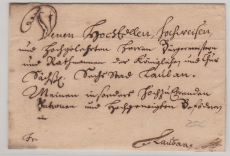 Denen HochEdlen, Hochweisen
und Hochgelahrten Herren Bürgermeistern
und Rathmannen der Königlichen und Chur
Sächß. Sechs Stad Lauban.
Meinen insonders HochzuEhrenden
Patronen und Hochgeneigten
Lauban.